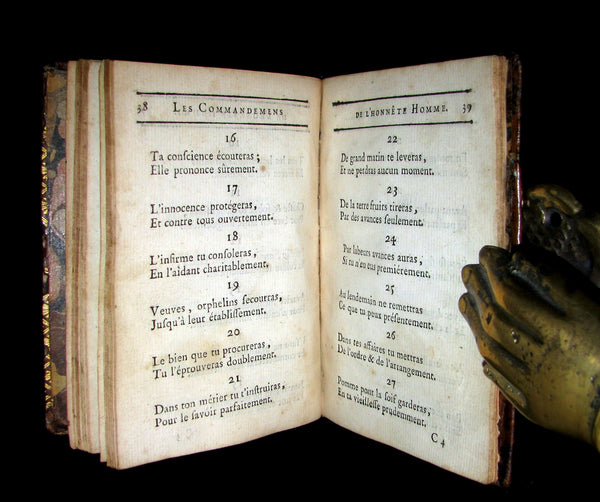 38 LES COMMANDEMENS
16
Ta conscience écouteras ;
Elle prononce sûrement.
17
L'innocence protégeras,
Et contre tous ouvertement.
18
L'infirme tu consoleras,
En l'aidant charitablement.
19
Veuves, orphelins secourras,
Jusqu'à leur établissement.
20
Le bien que tu procureras,
Tu l'éprouveras doublement.
21
Dans ton métier tu t'instruiras,
Pour le savoir parfaitement.
DE L'HONNÊTE HOMME. 39
22
De grand matin te leveras,
Et ne perdras aucun moment.
23
De la terre fruits tireras,
Par des avances seulement.
24
Par labeurs avances auras,
Si tu n'en eus premiérement.
25
Au lendemain ne remettras
Ce que tu peux présentement.
26
Dans tes affaires tu mettras
De l'ordre & de l'arrangement.
27
Pomme pour la soif garderas,
En ta vieillesse prudemment.
C 4